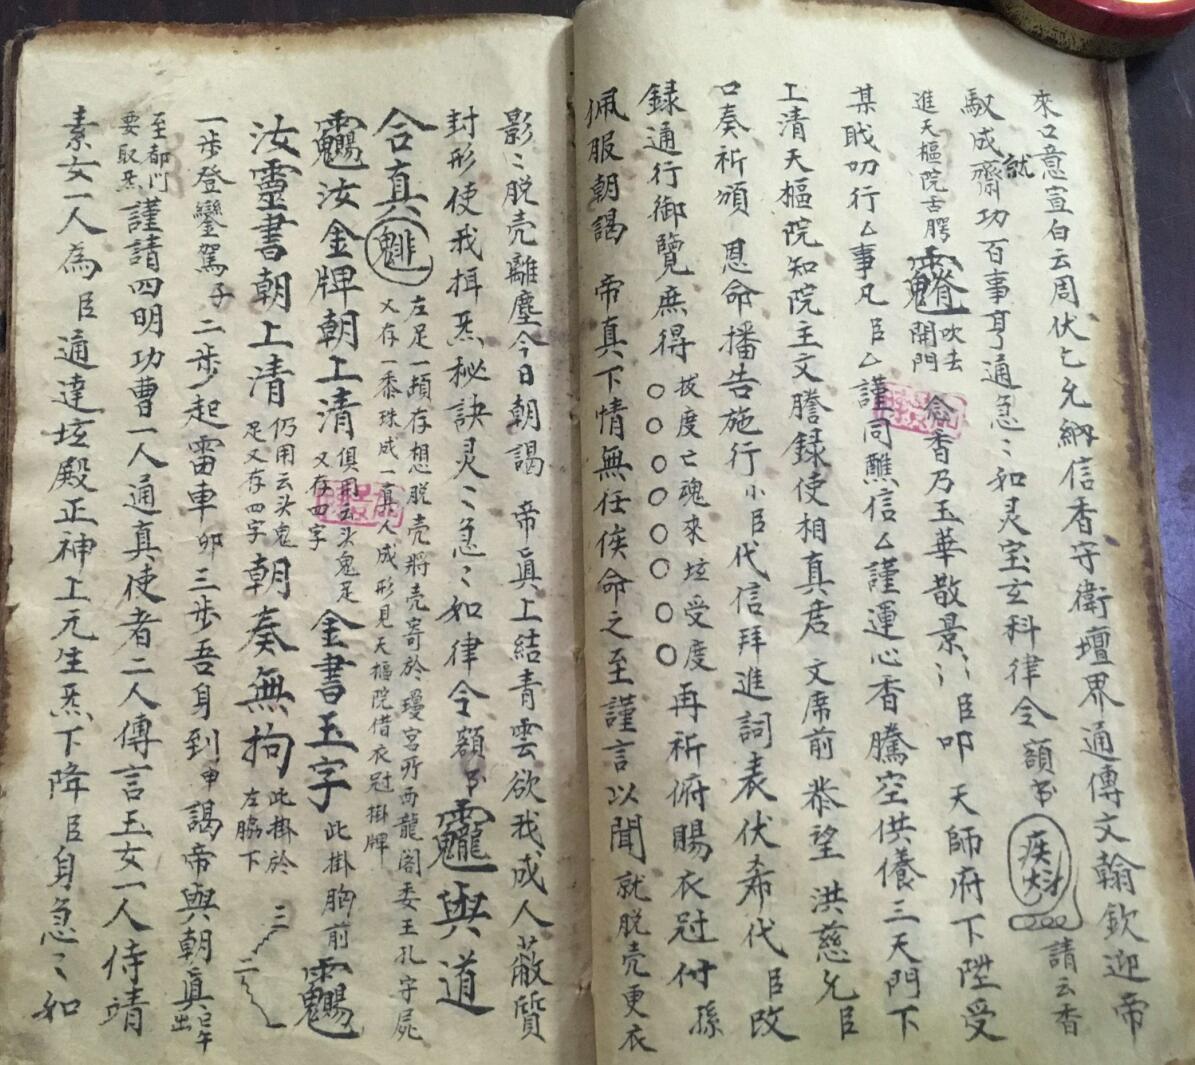 來口意宣白云周伏乞允納信香守衛壇界通傳文翰欽迎帝
馭成齋功就百事亨通急〻如灵宝玄科律令 額書 疾 請云香
進天樞院舌腭 吹去開門 念香乃玉華散景〻臣叩 天師府下陞受
某职叨行厶事凡臣厶謹同醮信厶謹運心香騰空供養三天門下
上清天樞院知院主文謄録使相真君 文席前恭望 洪慈允臣
口奏祈頒 恩命播告施行小臣代信拜進詞表伏希代臣改
録通行御覽庶得 拔度亡魂來坛受度 〇〇〇〇〇〇〇 再祈俯賜衣冠付孫
佩服朝謁 帝真下情無任俟命之至謹言以聞 就脱壳更衣
影〻脱壳離塵今日朝謁 帝眞上結青雲欲我成人蔽質
封形使我揖炁秘訣灵〻急〻如律令 額書 與道
合真 左足一頓存想脱壳將壳寄於瓊宮所西龍閣委王孔字屍
又存一黍珠成一真人成形見天樞院借衣冠掛牌
汝金牌朝上清 俱用云头鬼足又存四字 金書玉字 此掛胸前
汝靈書朝上清 仍用云头鬼足又存四字 朝奏無拘 此掛於左脇下
一步登鑾駕子 二步起雷車卯 三步吾身到申 謁帝與朝眞 出
至都門要取炁 謹請四明功曹一人通真使者二人傳言玉女一人侍靖
素女一人為臣通達坛殿正神上元生炁下降臣身急〻如